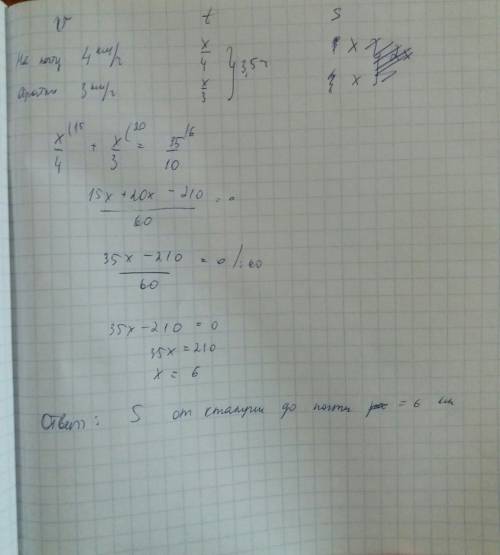 V t S
На почту 4 км/ч x/4 x
Обратно 3 км/ч x/3 } 3,5ч x
x/4 (15 + x/3 (20 = 35/10 /6
15x + 20x - 210 / 60 = 0
35x - 210 / 60 = 0 /·60
35x - 210 = 0
35x = 210
x = 6
Ответ: S от станции до почты = 6 км